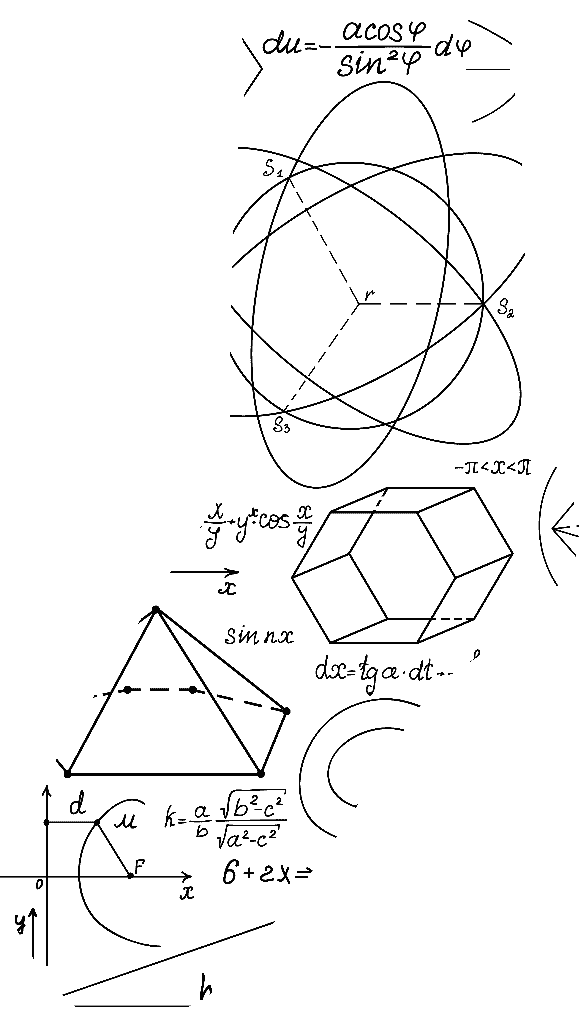 du=-acosφ/sin²φ dφ
S₁
r
S₂
S₃
-π<x<π
x/y+yˣ·cos x/y
x
sin nx
dx=tgα·dt--
d
M
k=a/b √b²-c²/√a²-c²
F
6+2x=
0
x
y
h